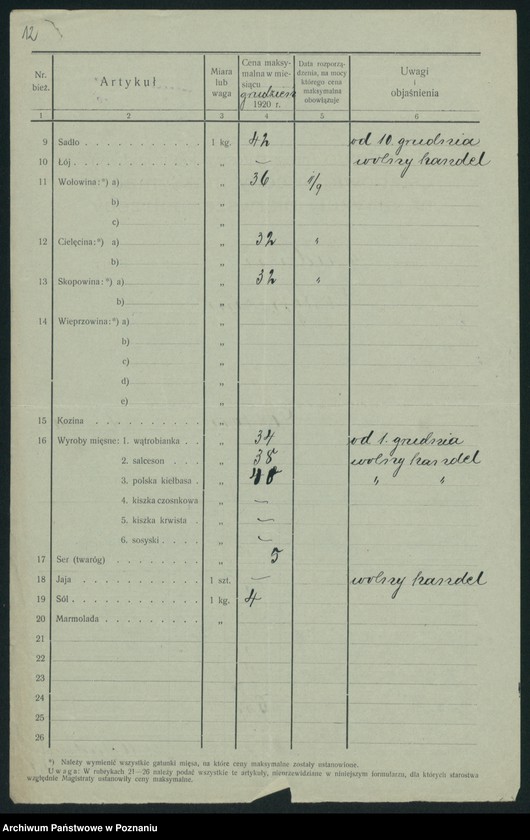 12
Nr. bież. | Artykuł | Miara lub waga | Cena maksymalna w miesiącu grudzień 1920 r. | Data rozporządzenia, na mocy którego cena maksymalna obowiązuje | Uwagi i objaśnienia
1 | 2 | 3 | 4 | 5 | 6
9 Sadło . . . . 1 kg. 42 od 10. grudnia
10 Łój . . . . „ — wolny handel
11 Wołowina:*) a) „ 36 1/9
b) „
c) „
12 Cielęcina:*) a) „ 32 „
b) „
13 Skopowina:*) a) „ 32 „
b) „
14 Wieprzowina:*) a) „
b) „
c) „
d) „
e) „
15 Kozina . . . . „
16 Wyroby mięsne: 1. wątrobianka . . „ 34 od 1. grudnia
2. salceson . . . „ 38 wolny handel
3. polska kiełbasa . „ „ „
4. kiszka czosnkowa „ —
5. kiszka krwista . „ —
6. sosyski . . . . „ —
17 Ser (twaróg) „ 5
18 Jaja . . . . 1 szt. — wolny handel
19 Sól . . . . 1 kg. 4
20 Marmolada . . . . „
21
22
23
24
25
26
*) Należy wymienić wszystkie gatunki mięsa, na które ceny maksymalne zostały ustanowione.
Uwaga: W rubrykach 21—26 należy podać wszystkie te artykuły, nieprzewidziane w niniejszym formularzu, dla których starostwa
względnie Magistraty ustanowiły ceny maksymalne.
Archiwum Państwowe w Poznaniu